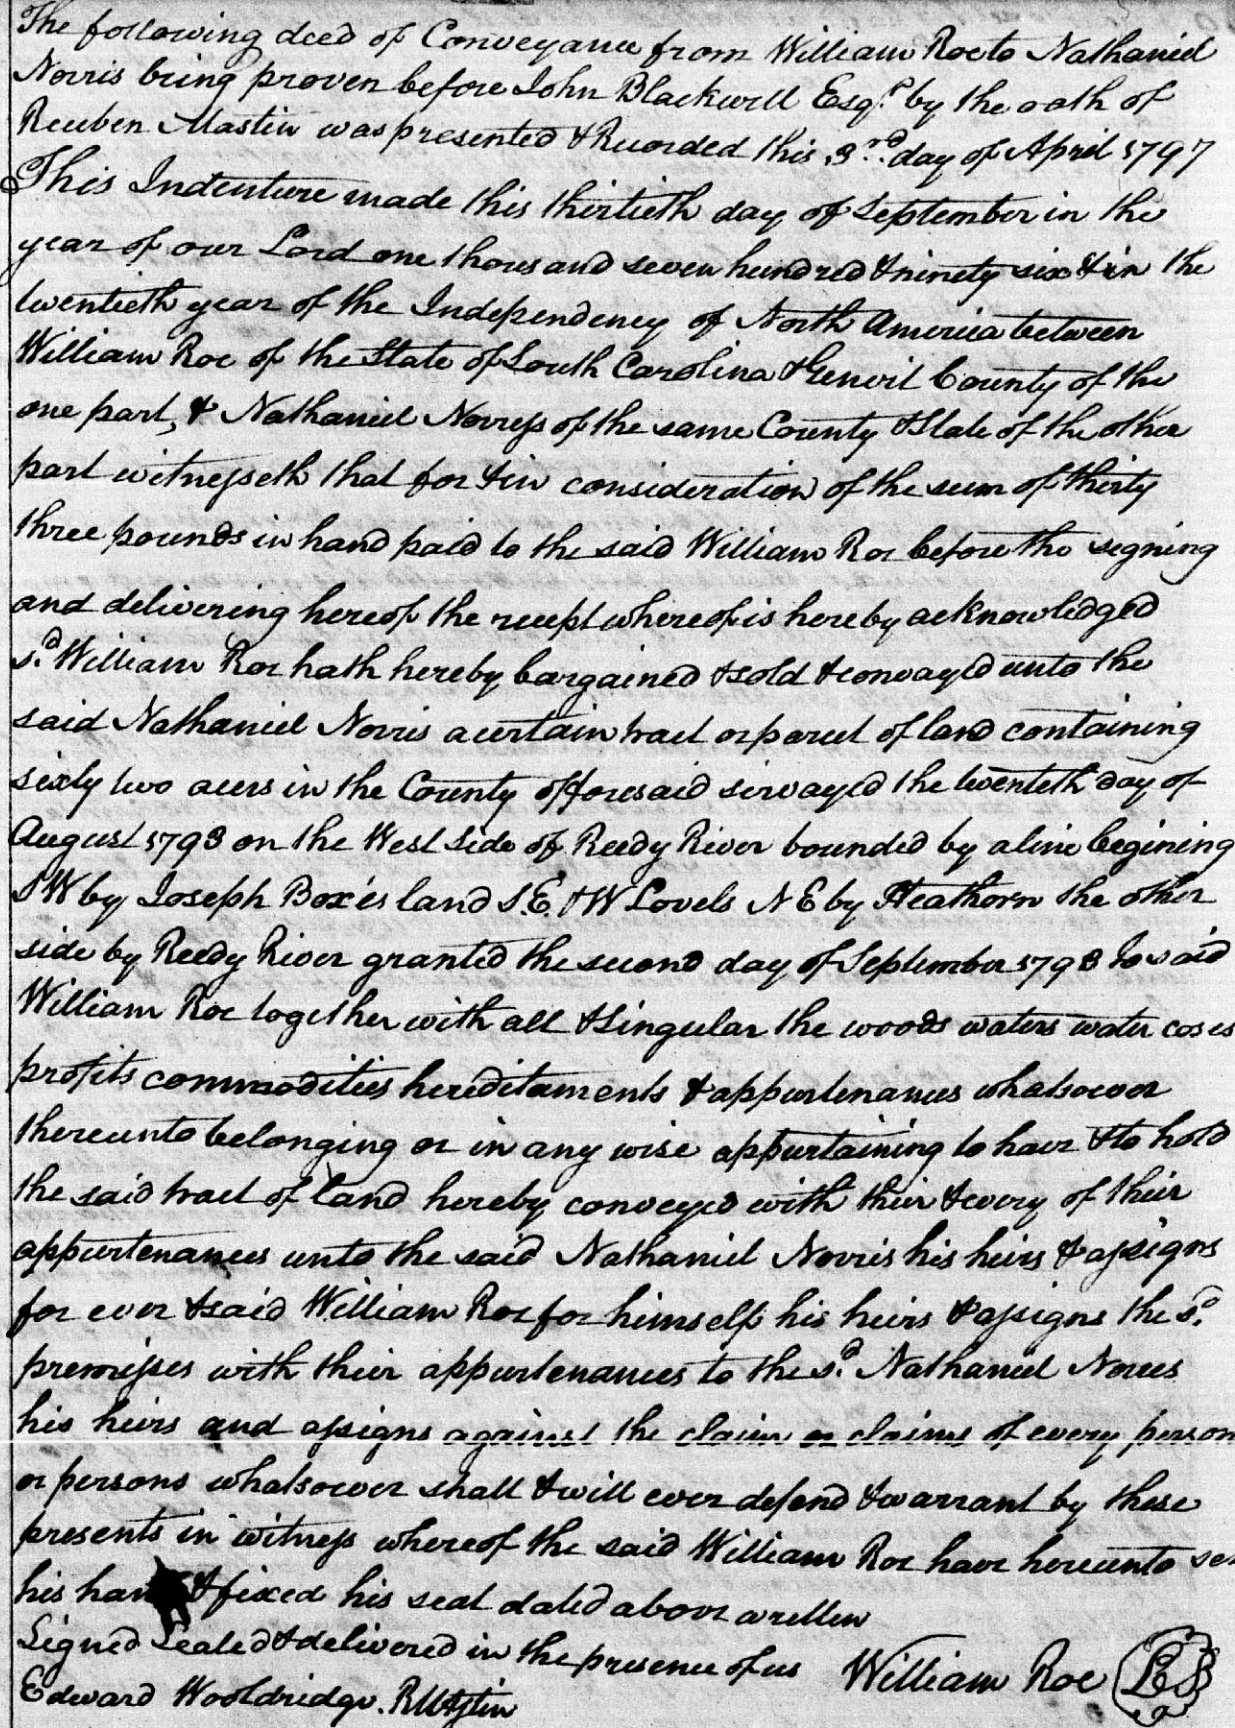 The following deed of Conveyance from William Roe to Nathaniel
Norris being proven before John Blackwell Esqr. by the oath of
Reuben Mastin was presented & Recorded this 3rd. day of April 1797
This Indenture made this thirtieth day of September in the
year of our Lord one thousand seven hundred & ninety six & in the
twentieth year of the Independency of North America between
William Roe of the State of South Carolina & Grenvil County of the
one part, & Nathaniel Norress of the same County & State of the other
part witnesseth that for & in consideration of the sum of thirty
three pounds in hand paid to the said William Roe before the signing
and delivering hereof the recept whereof is hereby acknowledged
sd. William Roe hath hereby bargained & sold & convayed unto the
said Nathaniel Norris a certain tract or parcel of land containing
sixty two acers in the County afforesaid sirvayed the twenteth day of
August 1793 on the West side of Reedy River bounded by a line begining
SW by Joseph Box'es land S.E. & W Lovels N E by Heathorn the other
side by Reedy River granted the second day of September 1793 to said
William Roe together with all & singular the woods waters water coses
profits commodities hereditaments & appurtenances whatsoever
thereunto belonging or in any wise appurtaining to have & to hold
the said tract of land hereby conveyed with their & every of their
appurtenances unto the said Nathaniel Norris his heirs & assigns
for ever & said William Roe for himself his heirs & assigns the sd.
premisses with their appurtenances to the sd. Nathaniel Norres
his heirs and assigns against the claim or claims of every person
or persons whatsoever shall & will ever defend & warrant by these
presents in witness whereof the said William Roe have hereunto set
his hand & fixed his seal dated above wretten
Signed Sealed & delivered in the presence of us William Roe LS
Edward Wooldridge. R Mastin